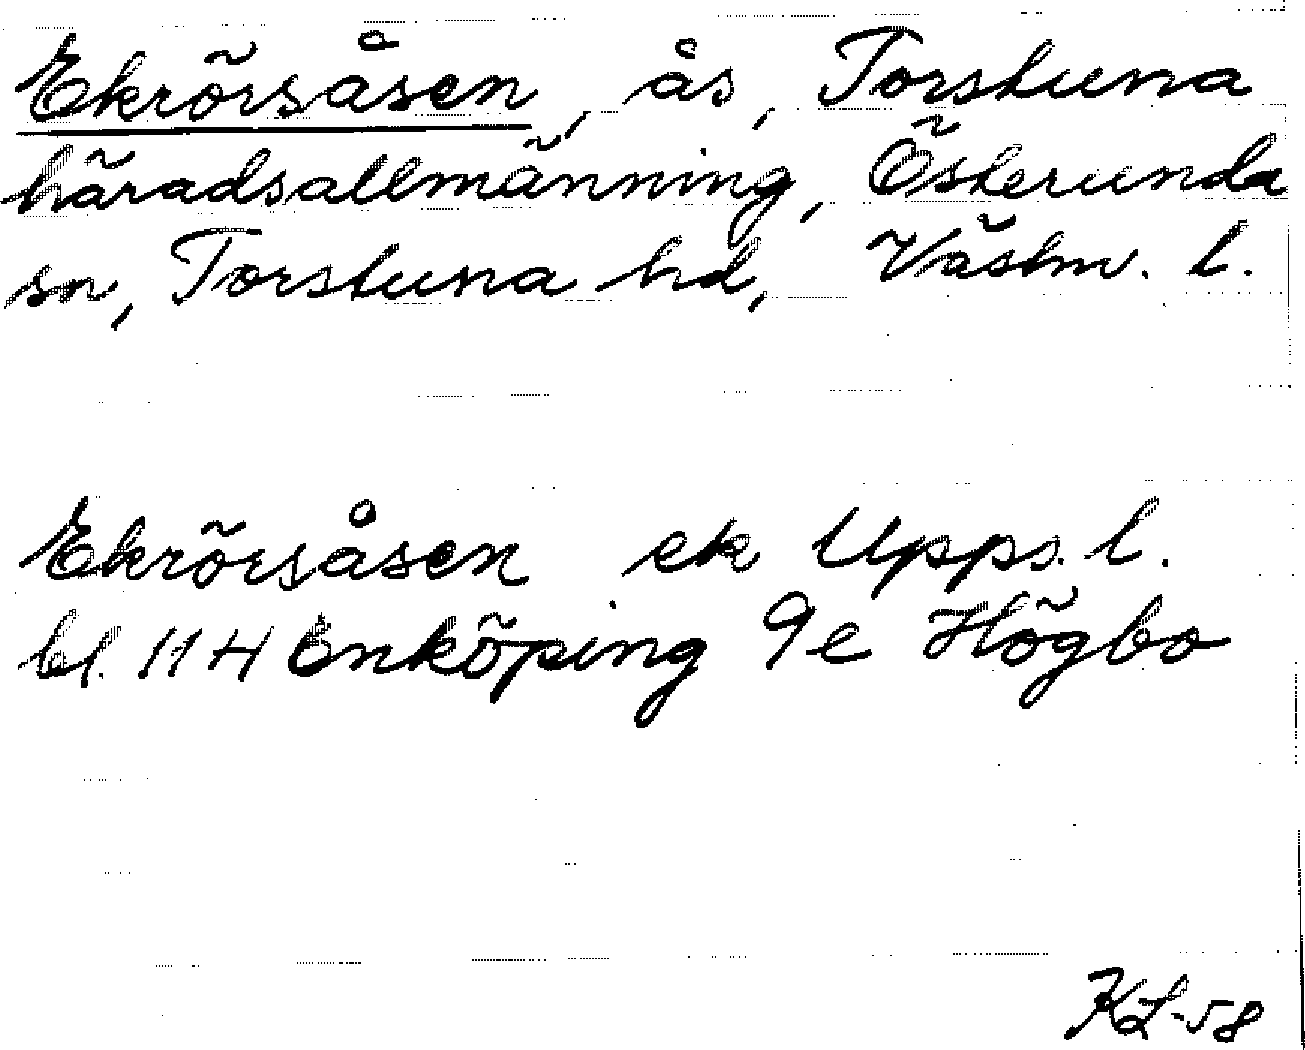 Ekrörsåsen, ås, Torstuna
häradsallmänning, Österunda
sn, Torstuna hd, Västm. l.
Ekrörsåsen ek Upps. l.
bl. 11 H Enköping 9e Högbo
KL-58